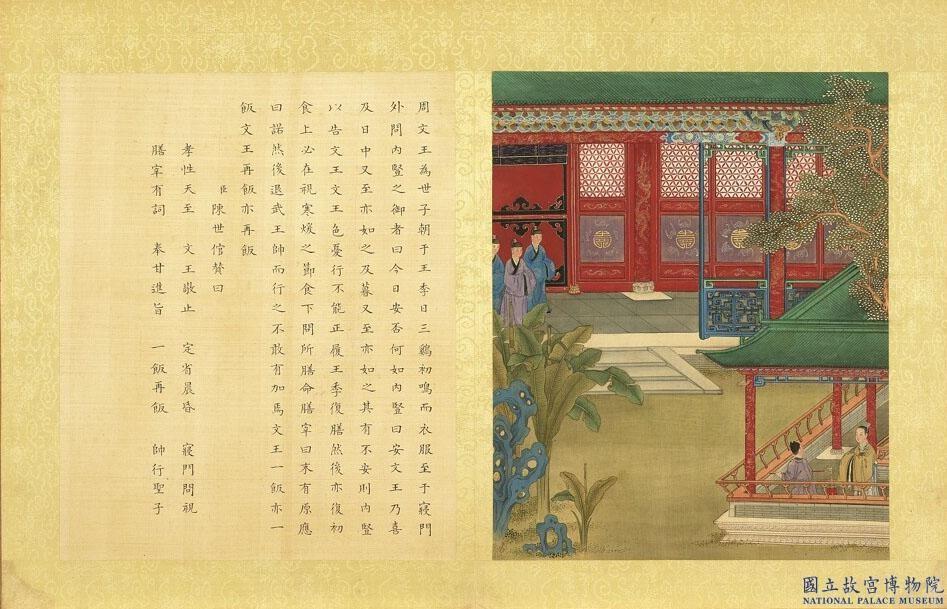 周文王為世子朝于王季日三鷄初鳴而衣服至于寢門
外問內豎之御者曰今日安否何如內豎曰安文王乃喜
及日中又至亦如之及暮又至亦如之其有不安則內豎
以告文王文王色憂行不能正履王季復膳然後亦復初
食上必在視寒煖之節食下問所膳命膳宰曰末有原應
曰諾然後退武王帥而行之不敢有加焉文王一飯亦一
飯文王再飯亦再飯
臣陳世倌贊曰
孝性天至 文王敬止 定省晨昏 寢門問視
膳宰有詞 奉甘進旨 一飯再飯 帥行聖子
國立故宮博物院
NATIONAL PALACE MUSEUM